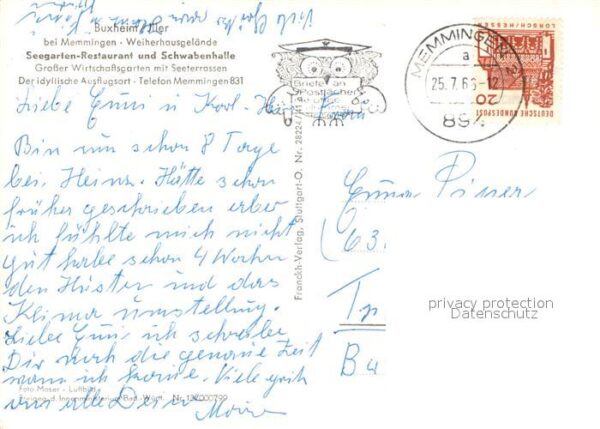 Buxheim Iller
bei Memmingen · Weiherhausgelände
Seegarten-Restaurant und Schwabenhalle
Großer Wirtschaftsgarten mit Seeterrassen
Der idyllische Ausflugsort · Telefon Memmingen 831
Liebe Emmi u Karl-Heinz
Bin nun schon 8 Tage
bei Heinz. Hätte schon
früher geschrieben aber
ich fühlte mich nicht
gut habe schon 4 Wochen
den Husten und das
Klima umstellung.
Liebe Emmi ich schreibe
Dir noch die genaue Zeit
wann ich komme. Viele
von
Foto Moser - Luftbild
Nr. 12/000799
Franckh-Verlag, Stuttgart-O. Nr. 28224/
Briefe an
Postfächer
MEMMINGEN 2
a
25.7.66-12
894
LORSCH/HESSEN
DEUTSCHE BUNDESPOST
20
Emma
(63
privacy protection
Datenschutz